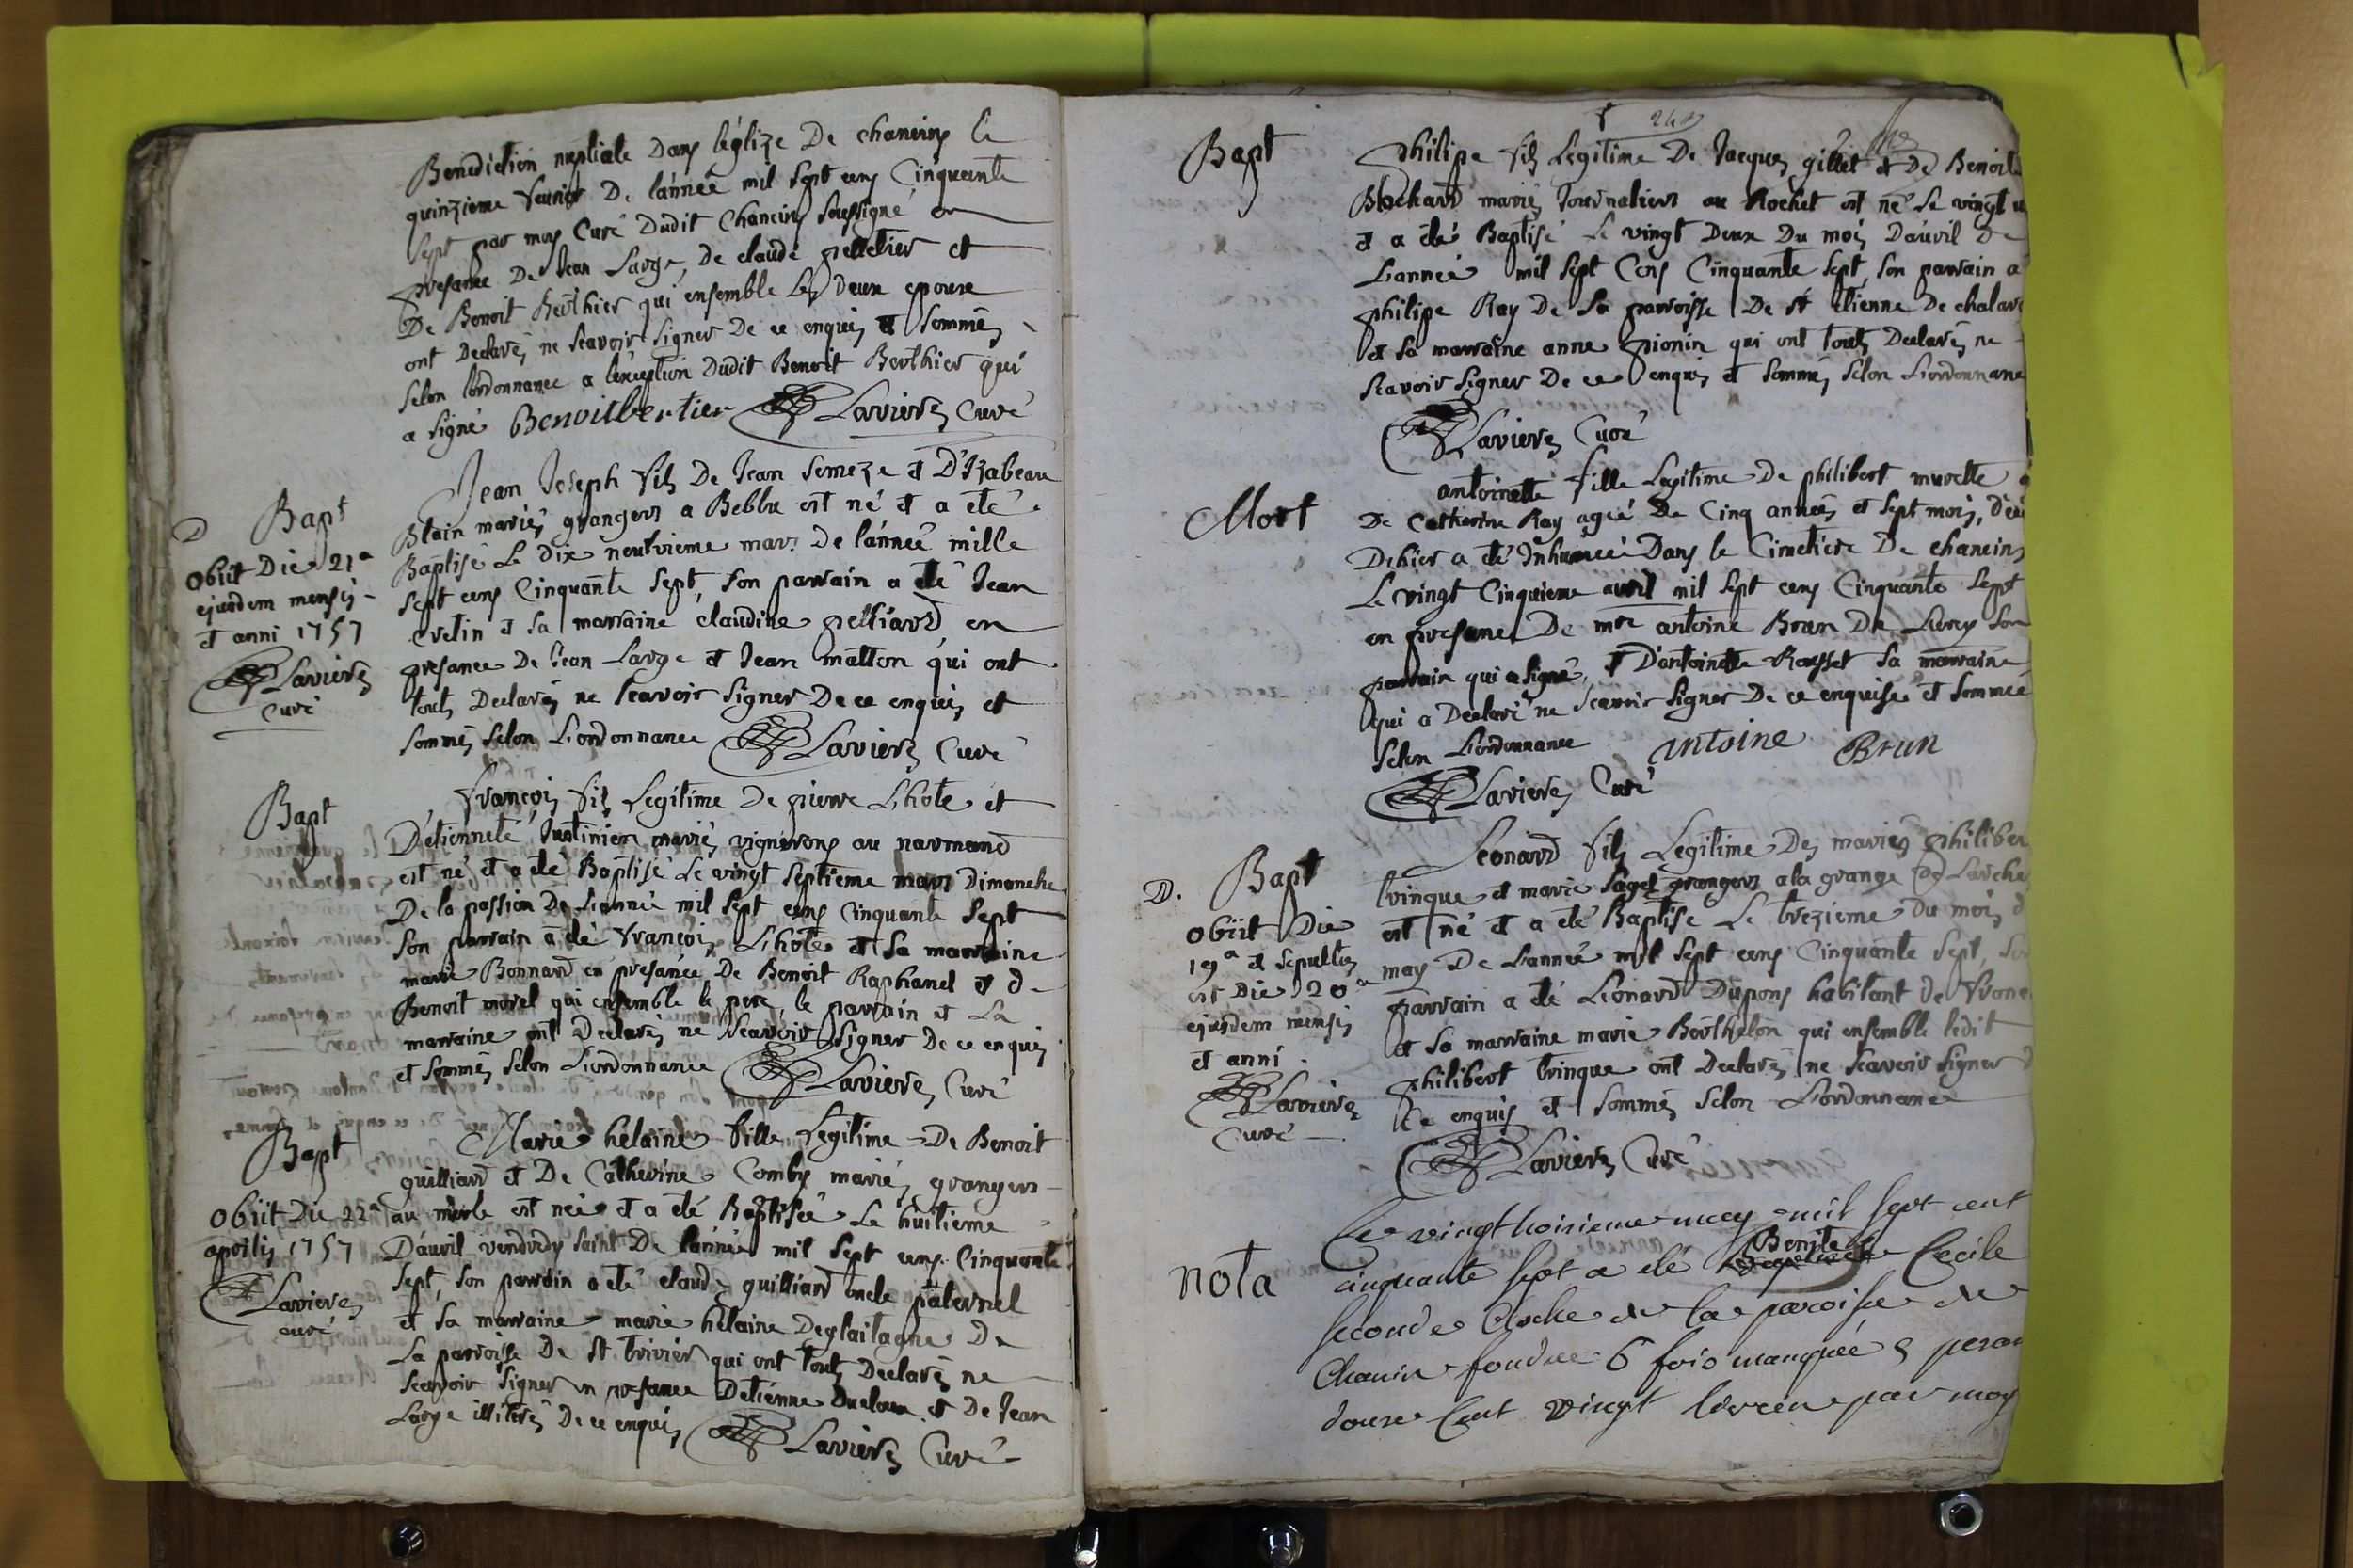 Benediction nuptiale Dans léglize De chaneins le
quinzieme feurier De lánneé mil sept cens Cinquante
sept par moy Curé Dudit Chaneins soussigné en
presance De Jean Large, De claude pelletier et
De Benoit Berthier qui ensemble les deux epoux
ont Declarés ne scavoir signer De ce enquis et sommés
selon lórdonnance a léxception Dudit Benoit Berthier qui
a signé Benoitbertier Lavieres Curé
Bapt
D
obiit Die 21a
ejusdem mensis
et anni 1757
Lavieres
curé
Jean Joseph fils De Jean semeze et D'Izabeau
Blain mariés grangers a Beblu est né et a eté
Baptisé Le dix neufvieme mars de lánneé mille
sept cens Cinquante sept, son parrain a eté Jean
cretin et sa marraine claudine pelliard en
presance De Jean Large et Jean matton qui ont
touts Declarés ne scavoir signer De ce enquis et
sommés selon Liordonnance Lavieres Curé
Bapt
françois fils Legitime De pierre L'hote et
D'étiennete Justinien mariés vignerons au narmand
est né et a eté Baptisé Le vingt septieme mars Dimanche
De la passion De Lanneé mil sept cens cinquante sept
son parrain a eté françois L'hote et sa marraine
marie Bonnard en presance De Benoit Raphanel et de
Benoit morel qui ensemble le pere, le parrain et La
marraine ont Declarés ne scavoir signer De ce enquis
et sommés selon Liordonnance Lavieres Curé
Bapt
obiit Die 22a
aprilis 1757
Lavieres
curé
Marie helaine fille Legitime De Benoit
guilliard et De Catherine Comby mariés grangers
au merle est neé et a eté Baptiseé Le huitieme
D'avril vendredy saint De lánneé mil sept cens Cinquante
sept, son parrain a eté claude guilliard oncle paternel
et sa marraine marie helaine Deglaitagne De
La parroisse De st trivier qui ont touts Declarés ne
scavoir signer en presance D'etienne Ducloux et De Jean
Large illiterés De ce enquis Lavieres Curé
Bapt
philipe fils Legitime De Jacques gillet et De Benoite
Bochard mariés Journaliers au Rochet est né Le vingt u
et a eté Baptisé Le vingt Deux Du mois D'avril De
L'anneé mil sept Cens Cinquante sept, son parrain a
philipe Ray De La parroisse De st etienne De chalar
et sa marraine anne pionin qui ont touts Declarés ne
scavoir signer De ce enquis et sommés selon Liordonnance
Lavieres Curé
Mort
antoinette fille Legitime De philibert murette
De Catherine Ray ageé De Cinq anneés et sept mois,
D'hier a eté Inhumeé Dans le Cimetiere De chaneins
Le vingt Cinquieme avril mil sept cens Cinquante sept
en presance De mre antoine Brun De Lurcy son
parrain qui a signé, et D'antoinette Rousset sa marraine
qui a Declaré ne scavoir signer De ce enquise et sommeé
selon Liordonnance antoine Brun
Lavieres Curé
Bapt
D.
obiit Die
19a et sepultus
est Die 20a
ejusdem mensis
et anni
Lavieres
curé
Leonard fils Legitime Des mariés philiber
trinque et marie Paget grangers a la grange De Larche
est né et a eté Baptisé Le trezieme Du mois d
may De Lanneé mil sept cens Cinquante sept, son
parrain a eté Léonard Dupons habitant de franc
et sa marraine marie Berthelon qui ensemble ledit
philibert trinque ont Declarés ne scavoir signer D
Ce enquis et sommés selon Liordonnance
Lavieres Curé
nota
Le vingt troisieme may mil sept cent
cinquante sept a eté Benite Cecile
seconde Cloche de la paroisse de
Chanein fondue 6 fois manquée 5 pesan
douze Cent vingt livres par moy